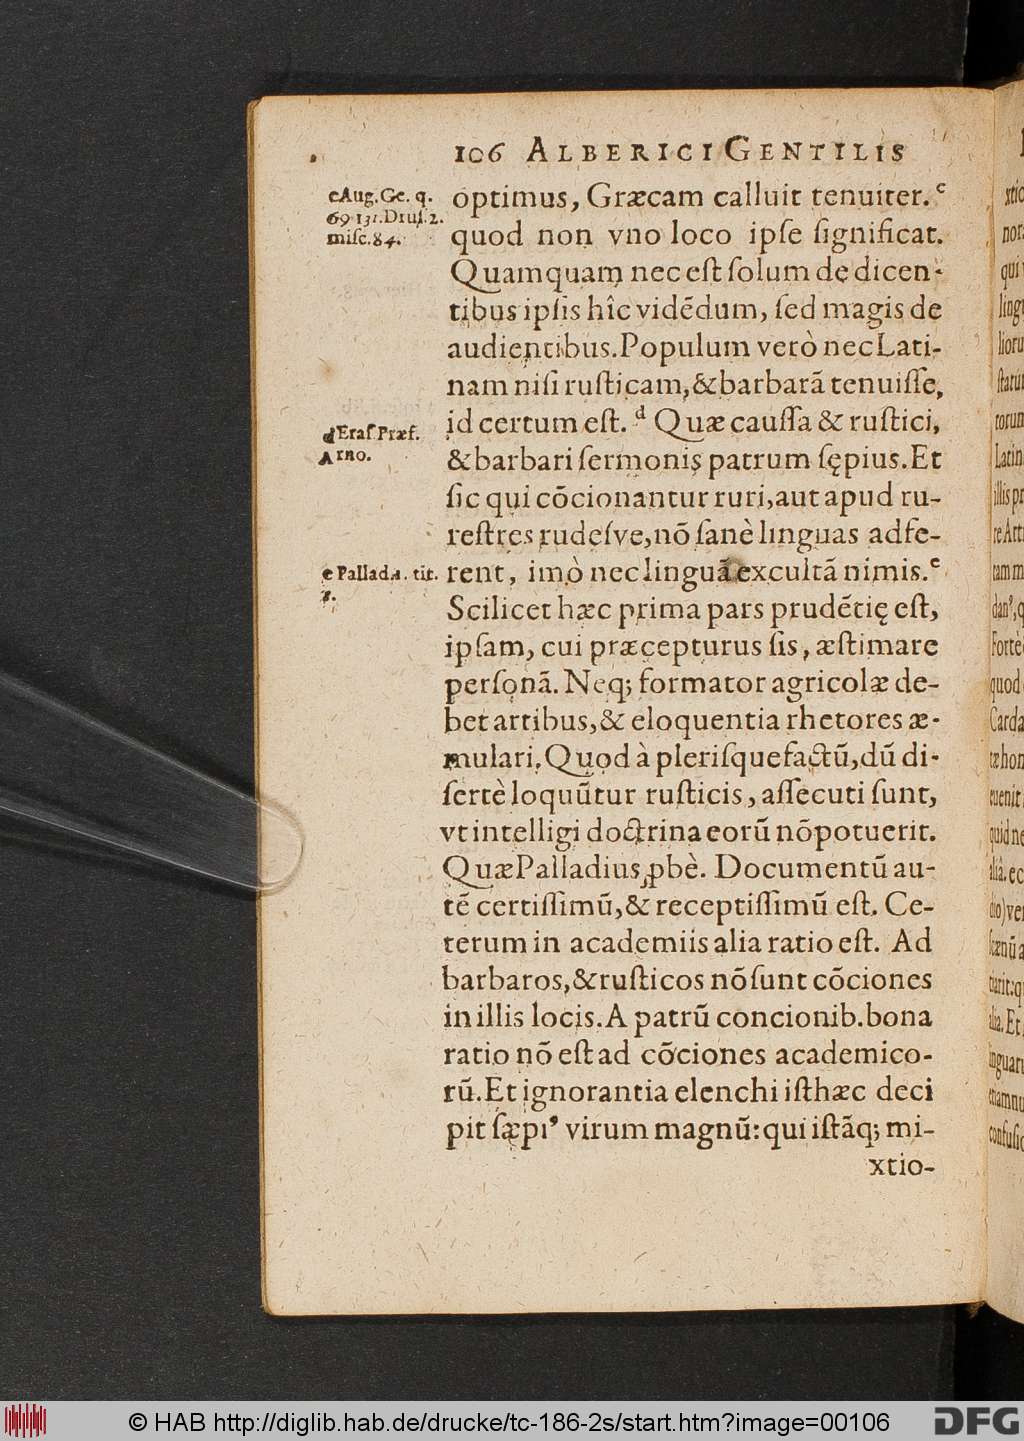 106 ALBERICI GENTILIS
optimus, Græcam calluit tenuiter. c
quod non vno loco ipſe ſignificat.
Quamquam nec eſt ſolum de dicen-
tibus ipſis hîc vidẽdum, ſed magis de
audientibus. Populum verò nec Lati-
nam niſi ruſticam, & barbarã tenuiſſe,
id certum eſt. d Quæ cauſſa & ruſtici,
& barbari ſermonis patrum ſępius. Et
ſic qui cõcionantur ruri, aut apud ru-
reſtres rudeſve, nõ ſanè linguas adfe-
rent, imò nec linguã excultã nimis. e
Scilicet hæc prima pars prudẽtię eſt,
ipſam, cui præcepturus ſis, æſtimare
perſonã. Neq; formator agricolæ de-
bet artibus, & eloquentia rhetores æ-
mulari. Quod à pleriſque factũ, dũ di-
ſertè loquũtur ruſticis, aſſecuti ſunt,
vt intelligi doctrina eorũ nõ potuerit.
Quæ Palladius ꝓbè. Documentũ au-
tẽ certiſſimũ, & receptiſſimũ eſt. Ce-
terum in academiis alia ratio eſt. Ad
barbaros, & ruſticos nõ ſunt cõciones
in illis locis. A patrũ concionib. bona
ratio nõ eſt ad cõciones academico-
rũ. Et ignorantia elenchi iſthæc deci
pit ſæpiꝰ virum magnũ: qui iſtãq; mi-
xtio-
c Aug. Ge. q.
69 131. Druſ. 2.
miſc. 84.
d Eraſ. Præf.
Arno.
e Pallad. a. tit.
© HAB http://diglib.hab.de/drucke/tc-186-2s/start.htm?image=00106
DFG